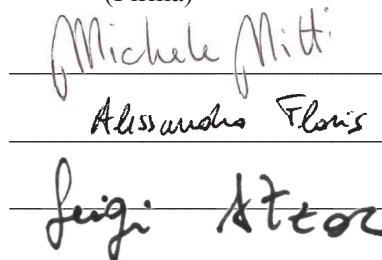 (Firma)
Michele Nitti
Alessandro Floris
Luigi Atzor